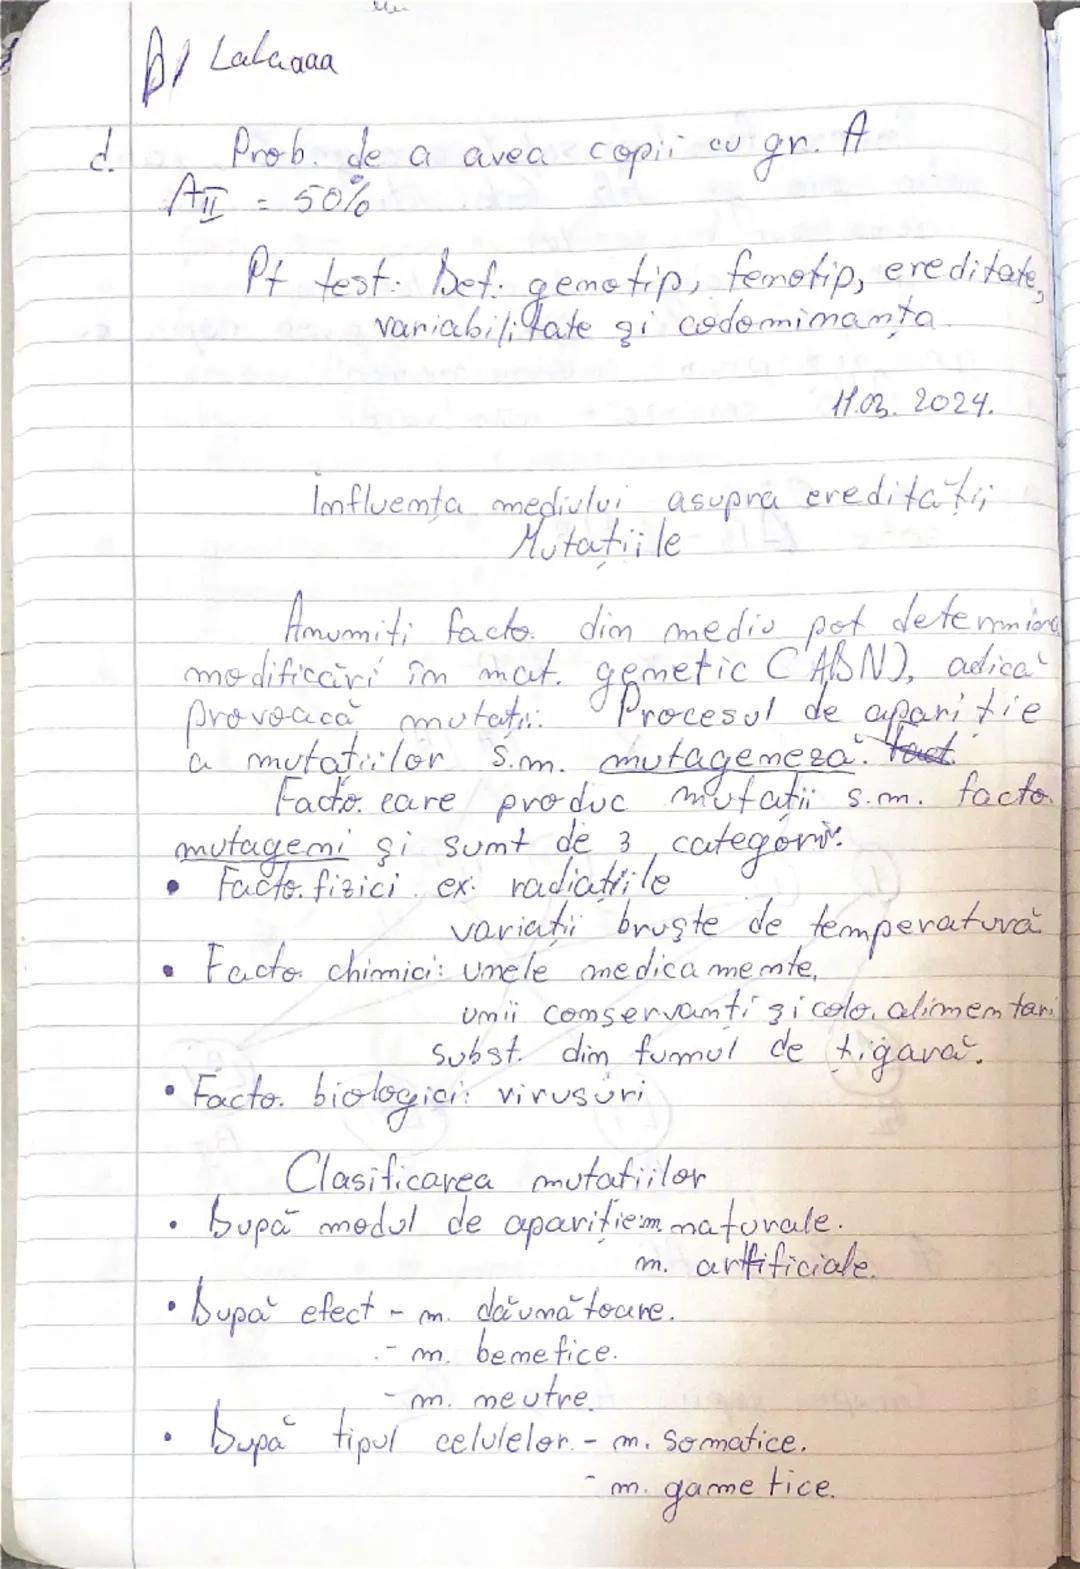 Lalaaaa
d. Prob. de a avea copii cu gr. A
AII = 50%
Pt test: Def. genotip, fenotip, ereditate,
variabilitate și codominanța.
11.03. 2024.
Influența mediului asupra eredității
Mutațiile
Anumiți facto. din mediu pot determina
modificări în mat. genetic (ADN), adică
provoacă mutații. Procesul de apariție
a mutațiilor s.m. mutageneză. fact.
Facto. care produc mutații s.m. facto.
mutageni și sunt de 3 categorii:
• Facto. fizici ex: radiațiile
variații bruște de temperatură
• Facto. chimici: unele medicamente,
unii conservanți și colo. alimentari
subst. din fumul de țigară.
• Facto. biologici: virusuri
Clasificarea mutațiilor
• După modul de apariție: m. naturale.
m. artificiale.
• După efect - m. dăunătoare.
- m. benefice.
- m. neutre.
• După tipul celulelor. - m. somatice.
- m. gametice.